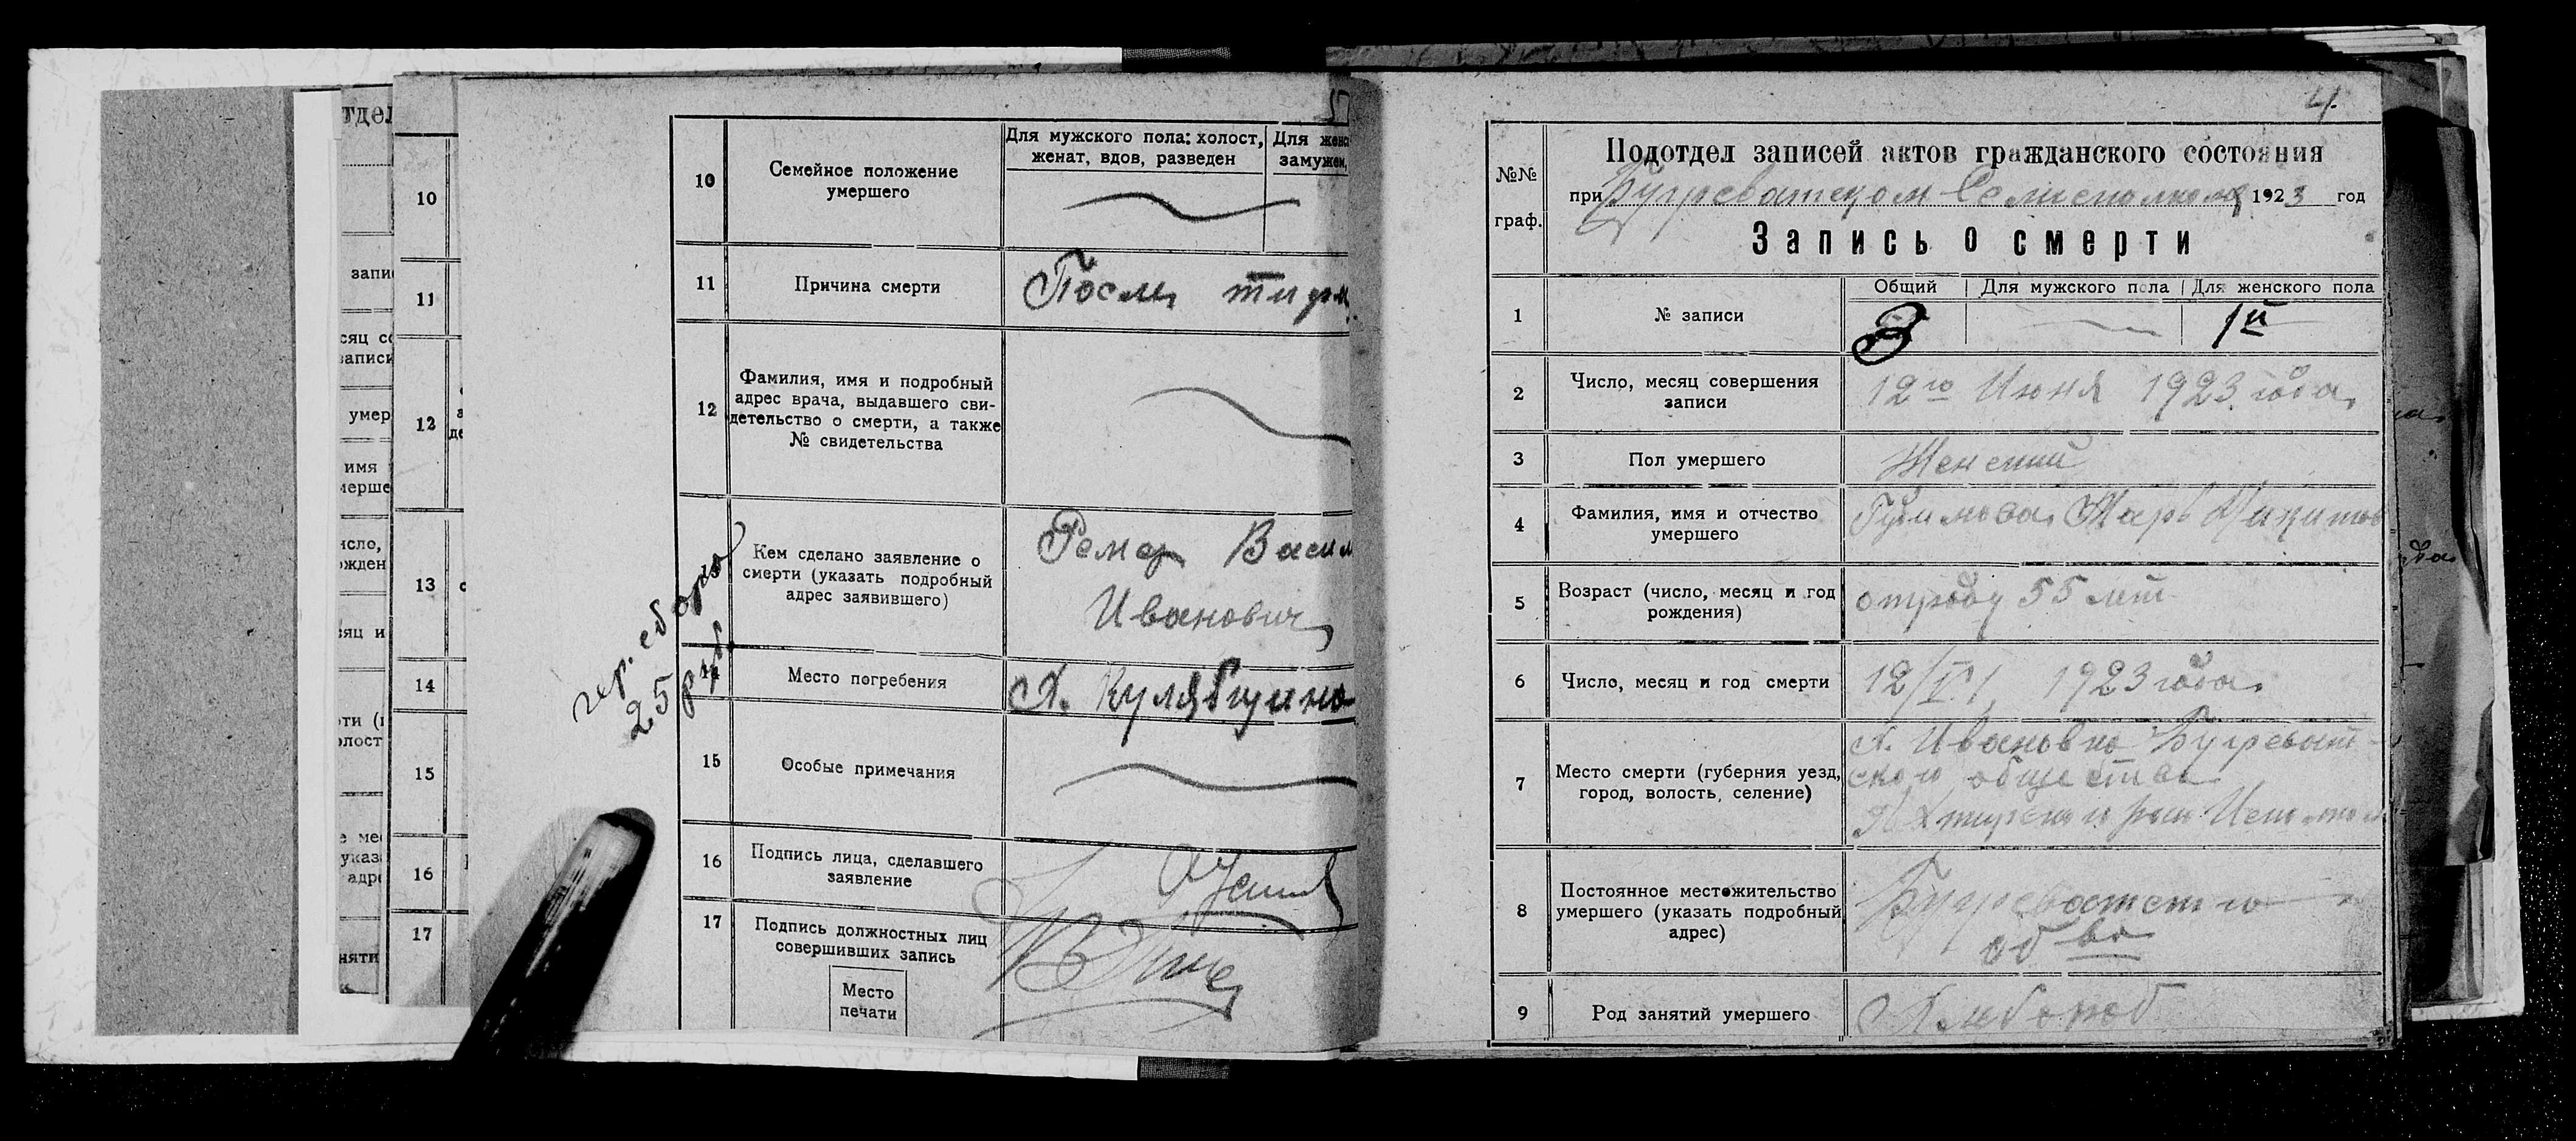 тдел
10
запи
11
сяц со
записи
12
умер
имя
мерше
исло,
ожден
13
сяц и
14
ти (
олост
15
е мес
указ
адре
16
17
няти
10
Семейное положение
умершего
Для мужского пола: холост,
женат, вдов, разведен
Для женс
замужем,
11
Причина смерти
После тифа
12
Фамилия, имя и подробный
адрес врача, выдавшего сви-
детельство о смерти, а также
№ свидетельства
Кем сделано заявление о
смерти (указать подробный
адрес заявившего)
Васил
Иванович
гер. сбора
25 руб.
14
Место погребения
Х.
15
Особые примечания
16
Подпись лица, сделавшего
заявление
17
Подпись должностных лиц
совершивших запись
Место
печати
4.
№№
граф.
Подотдел записей актов гражданского состояния
при Бугреватском 1923 год
Запись о смерти
1
№ записи
Общий
Для мужского пола
Для женского пола
3
1й
2
Число, месяц совершения
записи
12го Июня 1923 года
3
Пол умершего
Женский
4
Фамилия, имя и отчество
умершего
5
Возраст (число, месяц и год
рождения)
отроду 55 лет
6
Число, месяц и год смерти
12/VI 1923 года
7
Место смерти (губерния уезд,
город, волость, селение)
х. Ивановка Бугреват-
ского общества
8
Постоянное местожительство
умершего (указать подробный
адрес)
Бугреватского
об ва
9
Род занятий умершего
Хлебороб